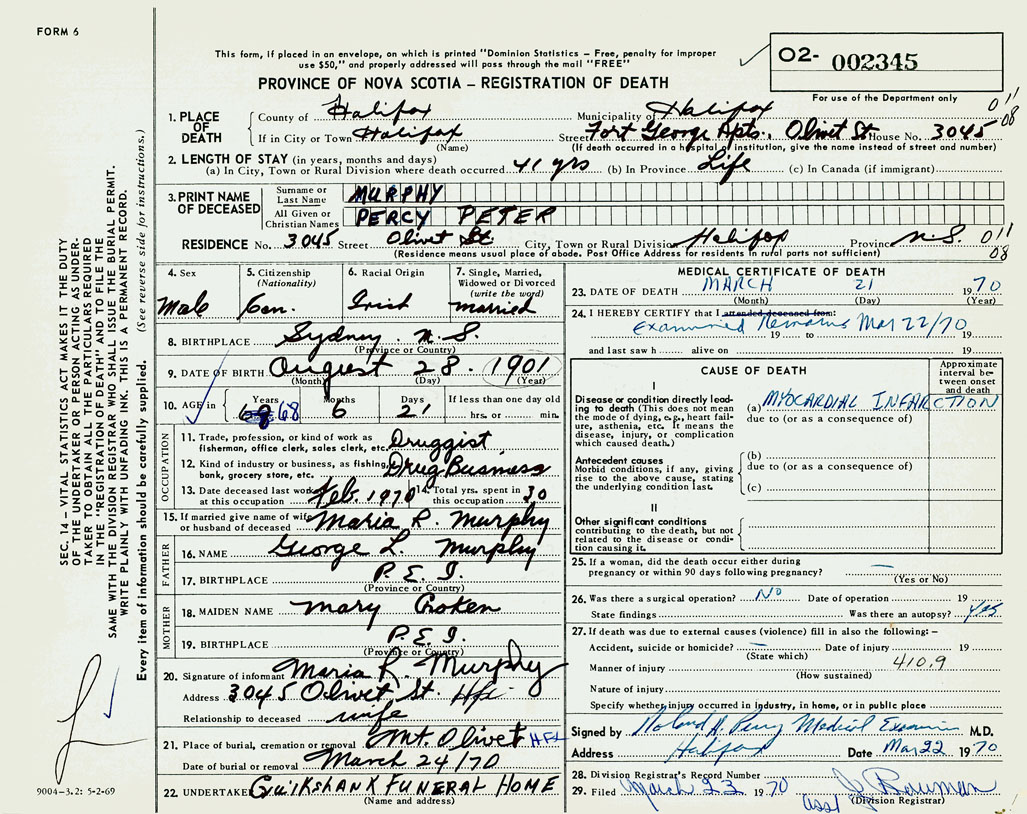 FORM 6
This form, if placed in an envelope, on which is printed "Dominion Statistics – Free, penalty for improper
use $50," and properly addressed will pass through the mail "FREE"
PROVINCE OF NOVA SCOTIA – REGISTRATION OF DEATH
02- 002345
For use of the Department only
011
08
1. PLACE OF DEATH
County of Halifax Municipality of Halifax
If in City or Town Halifax Street Fort George Apts., Olivet St House No. 3045
(Name) (If death occurred in a hospital or institution, give the name instead of street and number)
2. LENGTH OF STAY (in years, months and days)
(a) In City, Town or Rural Division where death occurred 41 yrs (b) In Province Life (c) In Canada (if immigrant)
3. PRINT NAME OF DECEASED
Surname or Last Name MURPHY
All Given or Christian Names PERCY PETER
RESIDENCE No. 3045 Street Olivet St. City, Town or Rural Division Halifax Province N.S. 011
08
(Residence means usual place of abode. Post Office Address for residents in rural parts not sufficient)
4. Sex
Male
5. Citizenship
(Nationality)
Can.
6. Racial Origin
Irish
7. Single, Married,
Widowed or Divorced
(write the word)
married
8. BIRTHPLACE Sydney N.S.
(Province or Country)
9. DATE OF BIRTH August 28. 1901
(Month) (Day) (Year)
10. AGE in Years 68 Months 6 Days 21 If less than one day old
hrs. or min.
OCCUPATION
11. Trade, profession, or kind of work as
fisherman, office clerk, sales clerk, etc. Druggist
12. Kind of industry or business, as fishing,
bank, grocery store, etc. Drug Business
13. Date deceased last worked
at this occupation Feb. 1970
14. Total yrs. spent in
this occupation 30
15. If married give name of wife
or husband of deceased Maria R. Murphy
FATHER
16. NAME George L. Murphy
17. BIRTHPLACE P.E.I.
(Province or Country)
MOTHER
18. MAIDEN NAME Mary Croken
19. BIRTHPLACE P.E.I.
(Province or Country)
20. Signature of informant Maria R. Murphy
Address 3045 Olivet St. Hfx.
Relationship to deceased wife
21. Place of burial, cremation or removal Mt. Olivet HFX
Date of burial or removal March 24/70
22. UNDERTAKER Cruikshank FUNERAL HOME
(Name and address)
MEDICAL CERTIFICATE OF DEATH
23. DATE OF DEATH MARCH 21 1970
(Month) (Day) (Year)
24. I HEREBY CERTIFY that I attended deceased from:
Examined Remains Mar 22/70
19 to 19
and last saw h alive on 19
CAUSE OF DEATH
Approximate
interval be-
tween onset
and death
I
Disease or condition directly lead-
ing to death (This does not mean
the mode of dying, e.g., heart fail-
ure, asthenia, etc. It means the
disease, injury, or complication
which caused death.)
(a) MYOCARDIAL INFARCTION
due to (or as a consequence of)
Antecedent causes
Morbid conditions, if any, giving
rise to the above cause, stating
the underlying condition last.
(b)
due to (or as a consequence of)
(c)
II
Other significant conditions
contributing to the death, but not
related to the disease or condi-
tion causing it.
25. If a woman, did the death occur either during
pregnancy or within 90 days following pregnancy? —
(Yes or No)
26. Was there a surgical operation? No Date of operation 19
State findings Was there an autopsy? Yes
27. If death was due to external causes (violence) fill in also the following: –
Accident, suicide or homicide? — Date of injury 19
(State which)
410.9
Manner of injury
(How sustained)
Nature of injury
Specify whether injury occurred in industry, in home, or in public place
Signed by Roland A. Perry Medical Examiner M.D.
Address Halifax Date Mar 22 1970
28. Division Registrar's Record Number
29. Filed March 23 1970 J. Bowman
Asst (Division Registrar)
SEC. 14 – VITAL STATISTICS ACT MAKES IT THE DUTY
OF THE UNDERTAKER OR PERSON ACTING AS UNDER-
TAKER TO OBTAIN ALL THE PARTICULARS REQUIRED
IN THE "REGISTRATION OF DEATH" AND TO FILE THE
SAME WITH THE DIVISION REGISTRAR WHO SHALL ISSUE THE BURIAL PERMIT.
WRITE PLAINLY WITH UNFADING INK. THIS IS A PERMANENT RECORD.
Every item of information should be carefully supplied. (See reverse side for instructions.)
9004-3.2: 5-2-69